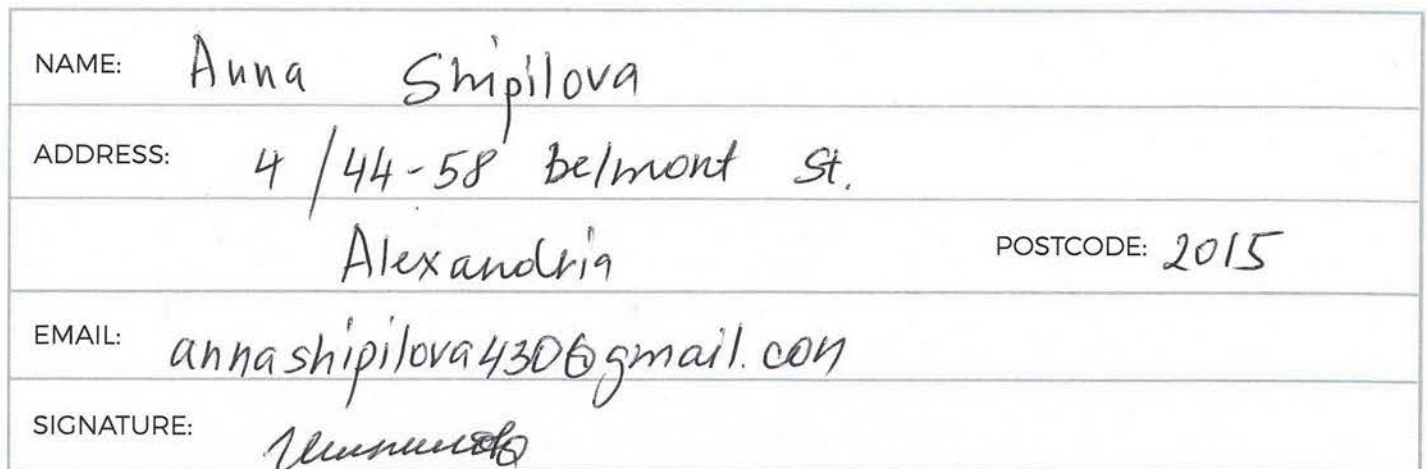 NAME: Anna Shipilova
ADDRESS: 4/44-58 Belmont St.
Alexandria POSTCODE: 2015
EMAIL: annashipilova430@gmail.com
SIGNATURE: